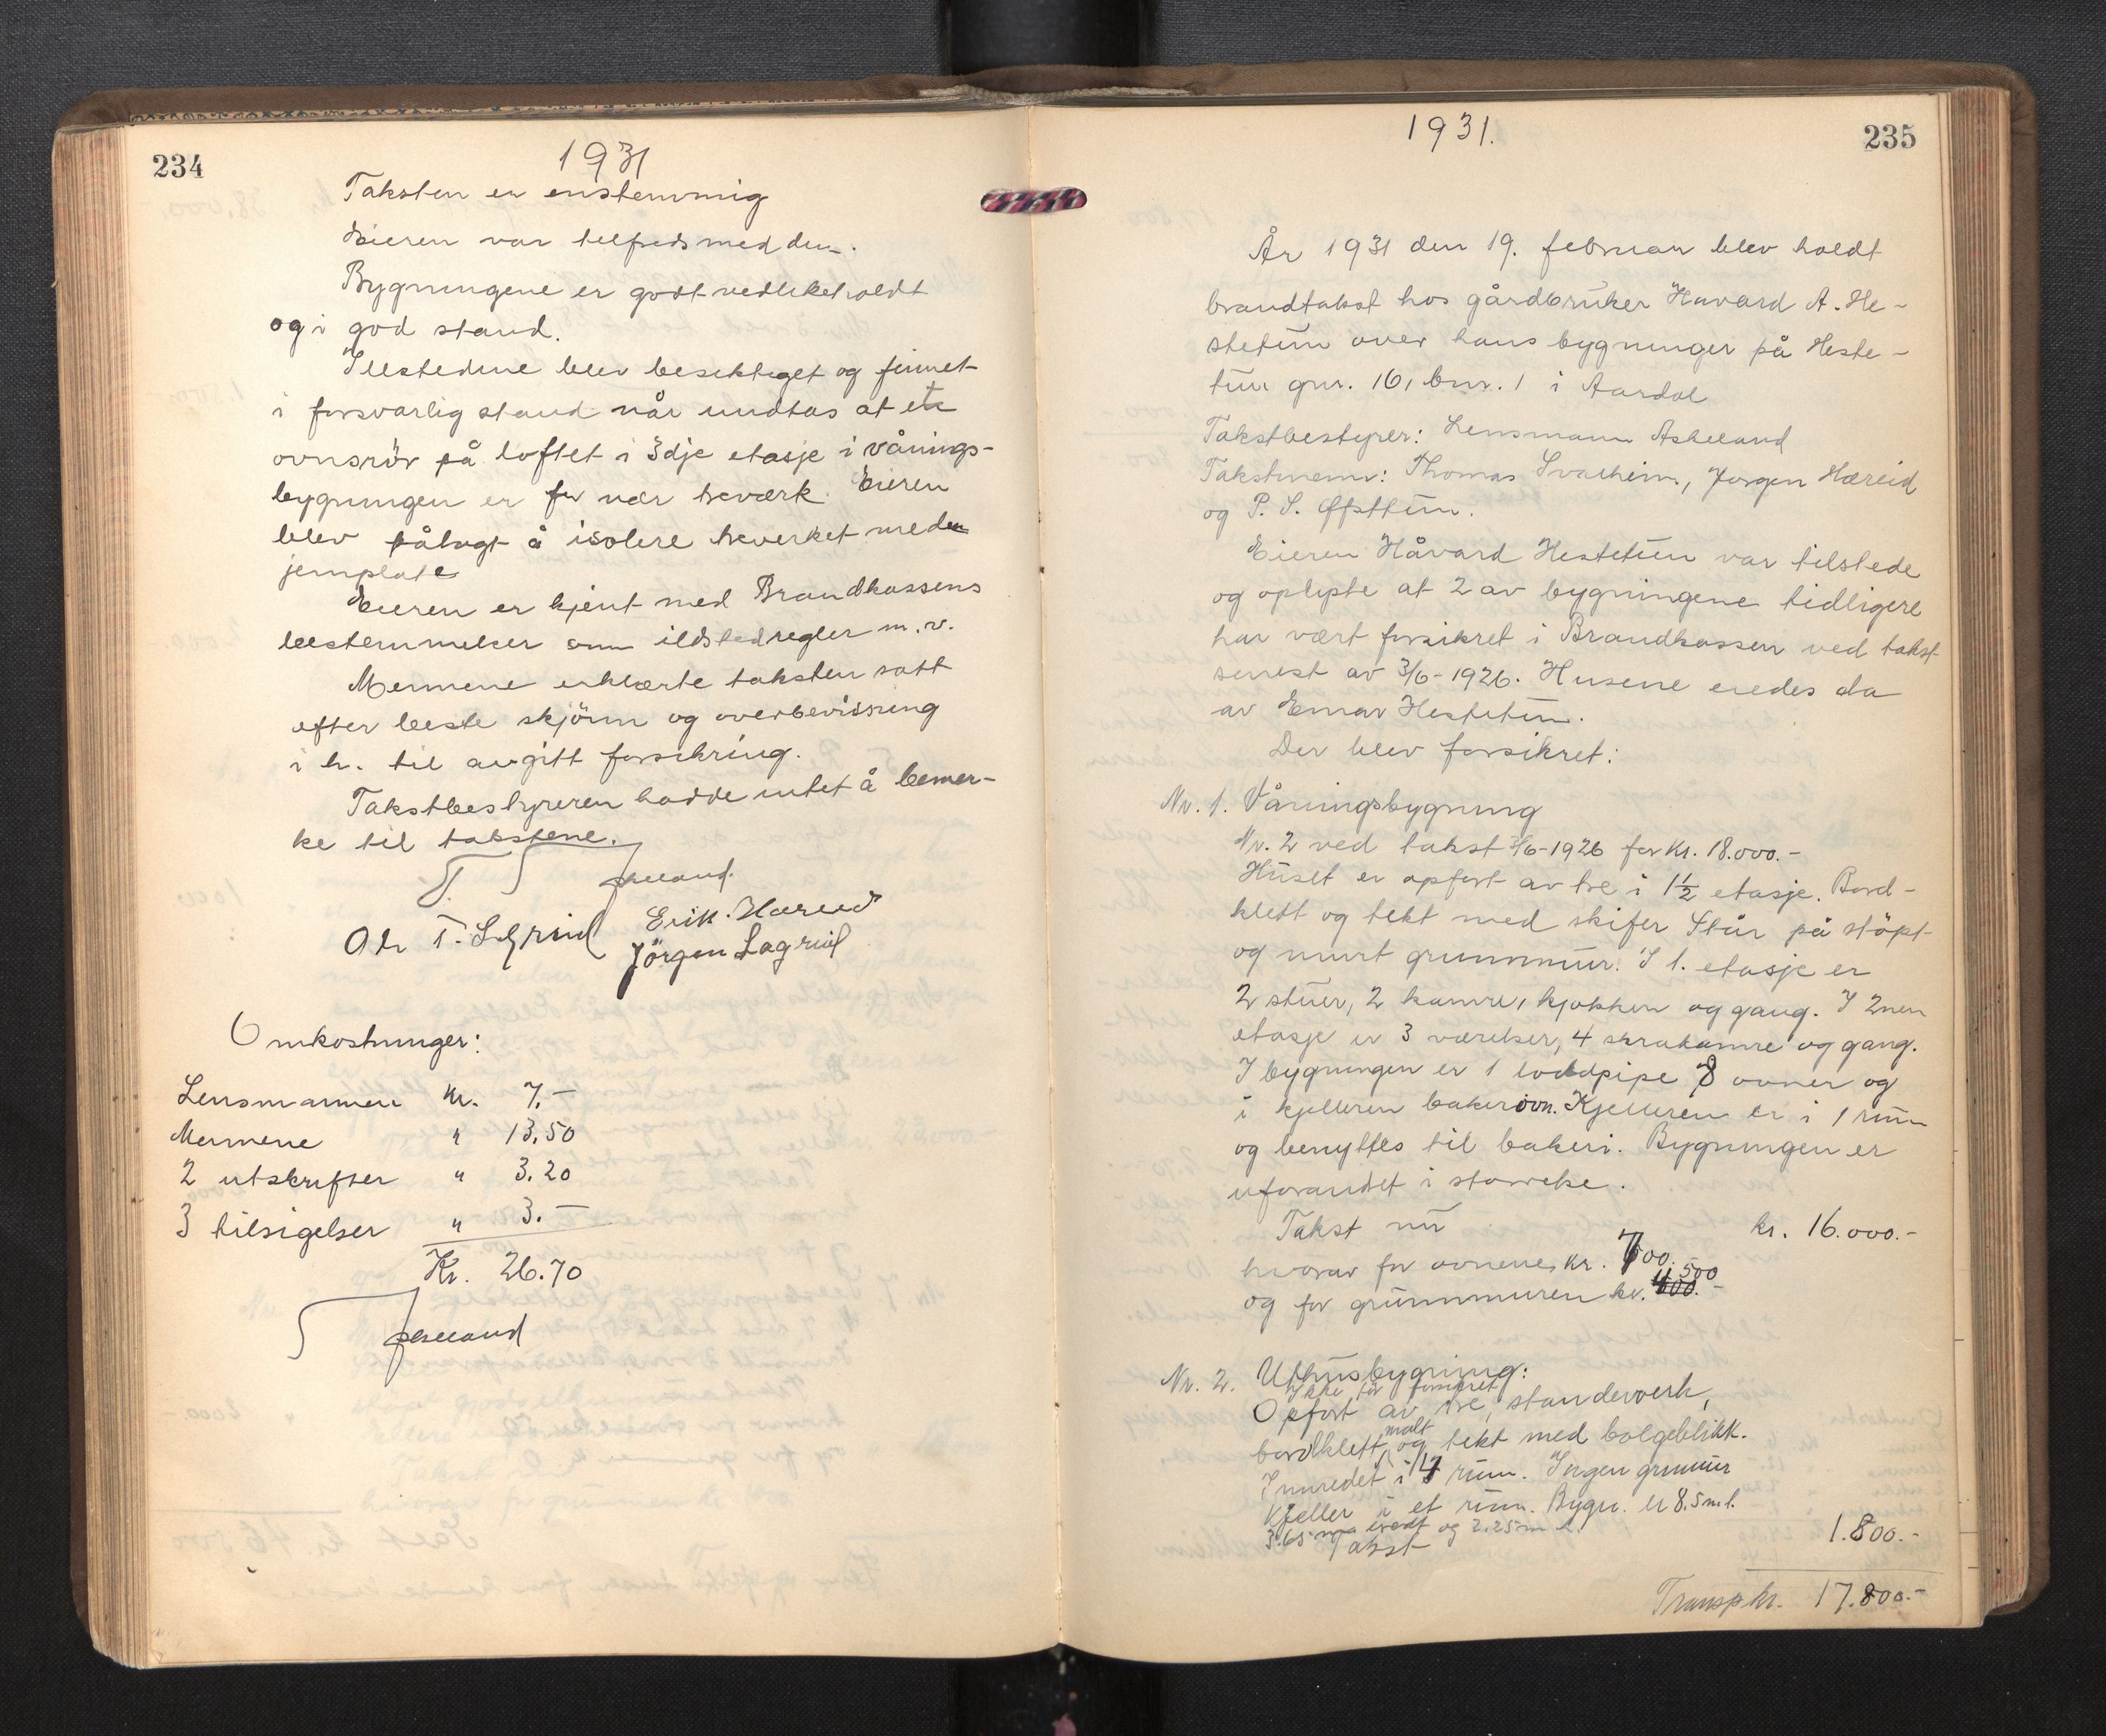 234
1931
Taksten er enstemmig
Eieren var tilfreds med den.
Bygningene er godt vedlikeholdt
og i god stand.
Ildstedene blev besiktiget og funnet
i forsvarlig stand når undtas at et
ovnsrör på loftet i 3dje etasje i vånings-
bygningen er for nær treværk. Eieren
blev pålagt å isolere treverket med en
jernplate
Eieren er kjent med Brandkassens
bestemmelser om ildstedregler m.v.
Mennene erklærte taksten satt
efter beste skjönn og overbevisning
i h. til avgitt forsikring.
Takstbestyreren hadde intet å bemer-
ke til takstene.
Askeland.
Erik Hæreid
Jörgen Lægreid
Omkostninger:
Lensmannen kr. 7.-
Mennene " 13.50
2 utskrifter " 3.20
3 tilsigelser " 3.-
Kr. 26.70
Askeland
235
1931.
År 1931 den 19. februar blev holdt
brandtakst hos gårdbruker Havard A. He-
stetun over hans bygninger på Heste-
tun gnr. 16, bnr. 1 i Aardal
Takstbestyrer: Lensmann Askeland
Takstmenn: Thomas Svalheim, Jørgen Hæreid
og P. S. Ofsttun.
Eieren Håvard Hestetun var tilstede
og oplyste at 2 av bygningene tidligere
har vært forsikret i Brandkassen ved takst
senest av 3/6-1926. Husene eiedes da
av Einar Hestetun.
Der blev forsikret:
Nr. 1. Våningsbygning
Nr. 2 ved takst 3/6-1926 for Kr. 18.000.-
Huset er opført av tre i 1½ etasje. Bord-
klett og tekt med skifer Står på stöpt
og murt grunnmur. I 1. etasje er
2 stuer, 2 kamre, kjøkken og gang. I 2nen
etasje er 3 værelser, 4 skrakamre og gang.
I bygningen er 1 loddpipe 8 ovner og
i kjelleren bakerovn. Kjelleren er i 1 rum
og benyttes til bakeri. Bygningen er
uforandret i størrelse.
Takst nu kr. 16.000.-
hvorav for ovnene kr. 700.
500
og for grunnmuren kr. 400.-
Nr. 2. Uthusbygning:
Ikke før forsikret
Opført av tre, standerverk,
malt
bordklett og tekt med bølgeblikk.
Innredet i 4 rum. Ingen grunmur
Kjeller i et rum. Bygn. er 8.5 m l.
3.65 m bredt og 2.25 m h.
Takst 1.800.-
Transp kr. 17.800.-